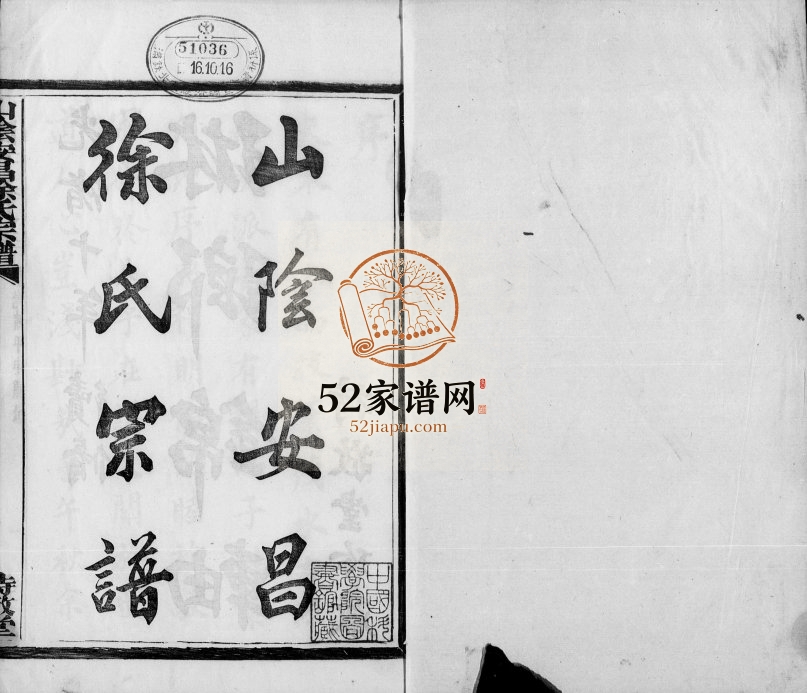 51036
16.10.16
山陰安昌
徐氏宗譜
山陰安昌徐氏宗譜
52家谱网
52jiapu.com